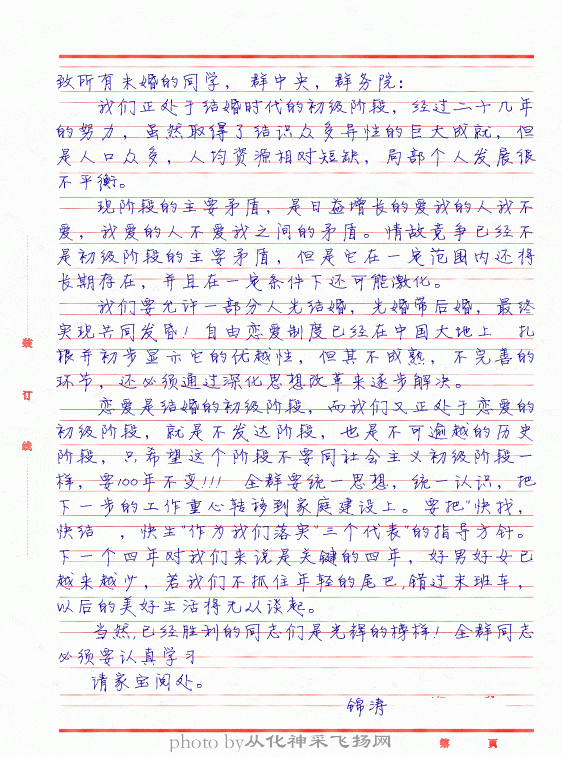 致所有未婚的同学，群中央，群务院：
我们正处于结婚时代的初级阶段，经过二十几年
的努力，虽然取得了结识众多异性的巨大成就，但
是人口众多，人均资源相对短缺，局部个人发展很
不平衡。
现阶段的主要矛盾，是日益增长的爱我的人我不
爱，我爱的人不爱我之间的矛盾。情敌竞争已经不
是初级阶段的主要矛盾，但是它在一定范围内还将
长期存在，并且在一定条件下还可能激化。
我们要允许一部分人先结婚，先婚带后婚，最终
实现共同发昏！自由恋爱制度已经在中国大地上 扎
根并初步显示它的优越性，但其不成熟，不完善的
环节，还必须通过深化思想改革来逐步解决。
恋爱是结婚的初级阶段，而我们又正处于恋爱的
初级阶段，就是不发达阶段，也是不可逾越的历史
阶段，只希望这个阶段不要同社会主义初级阶段一
样，要100年不变!!! 全群要统一思想，统一认识，把
下一步的工作重心转移到家庭建设上。要把"快找，
快结 ，快生"作为我们落实"三个代表"的指导方针。
下一个四年对我们来说是关键的四年，好男好女已
越来越少，若我们不抓住年轻的尾巴,错过末班车，
以后的美好生活将无从谈起。
当然,已经胜利的同志们是光辉的榜样！全群同志
必须要认真学习
请家宝阅处。
锦涛
装
订
线
第 页
photo by从化神采飞扬网